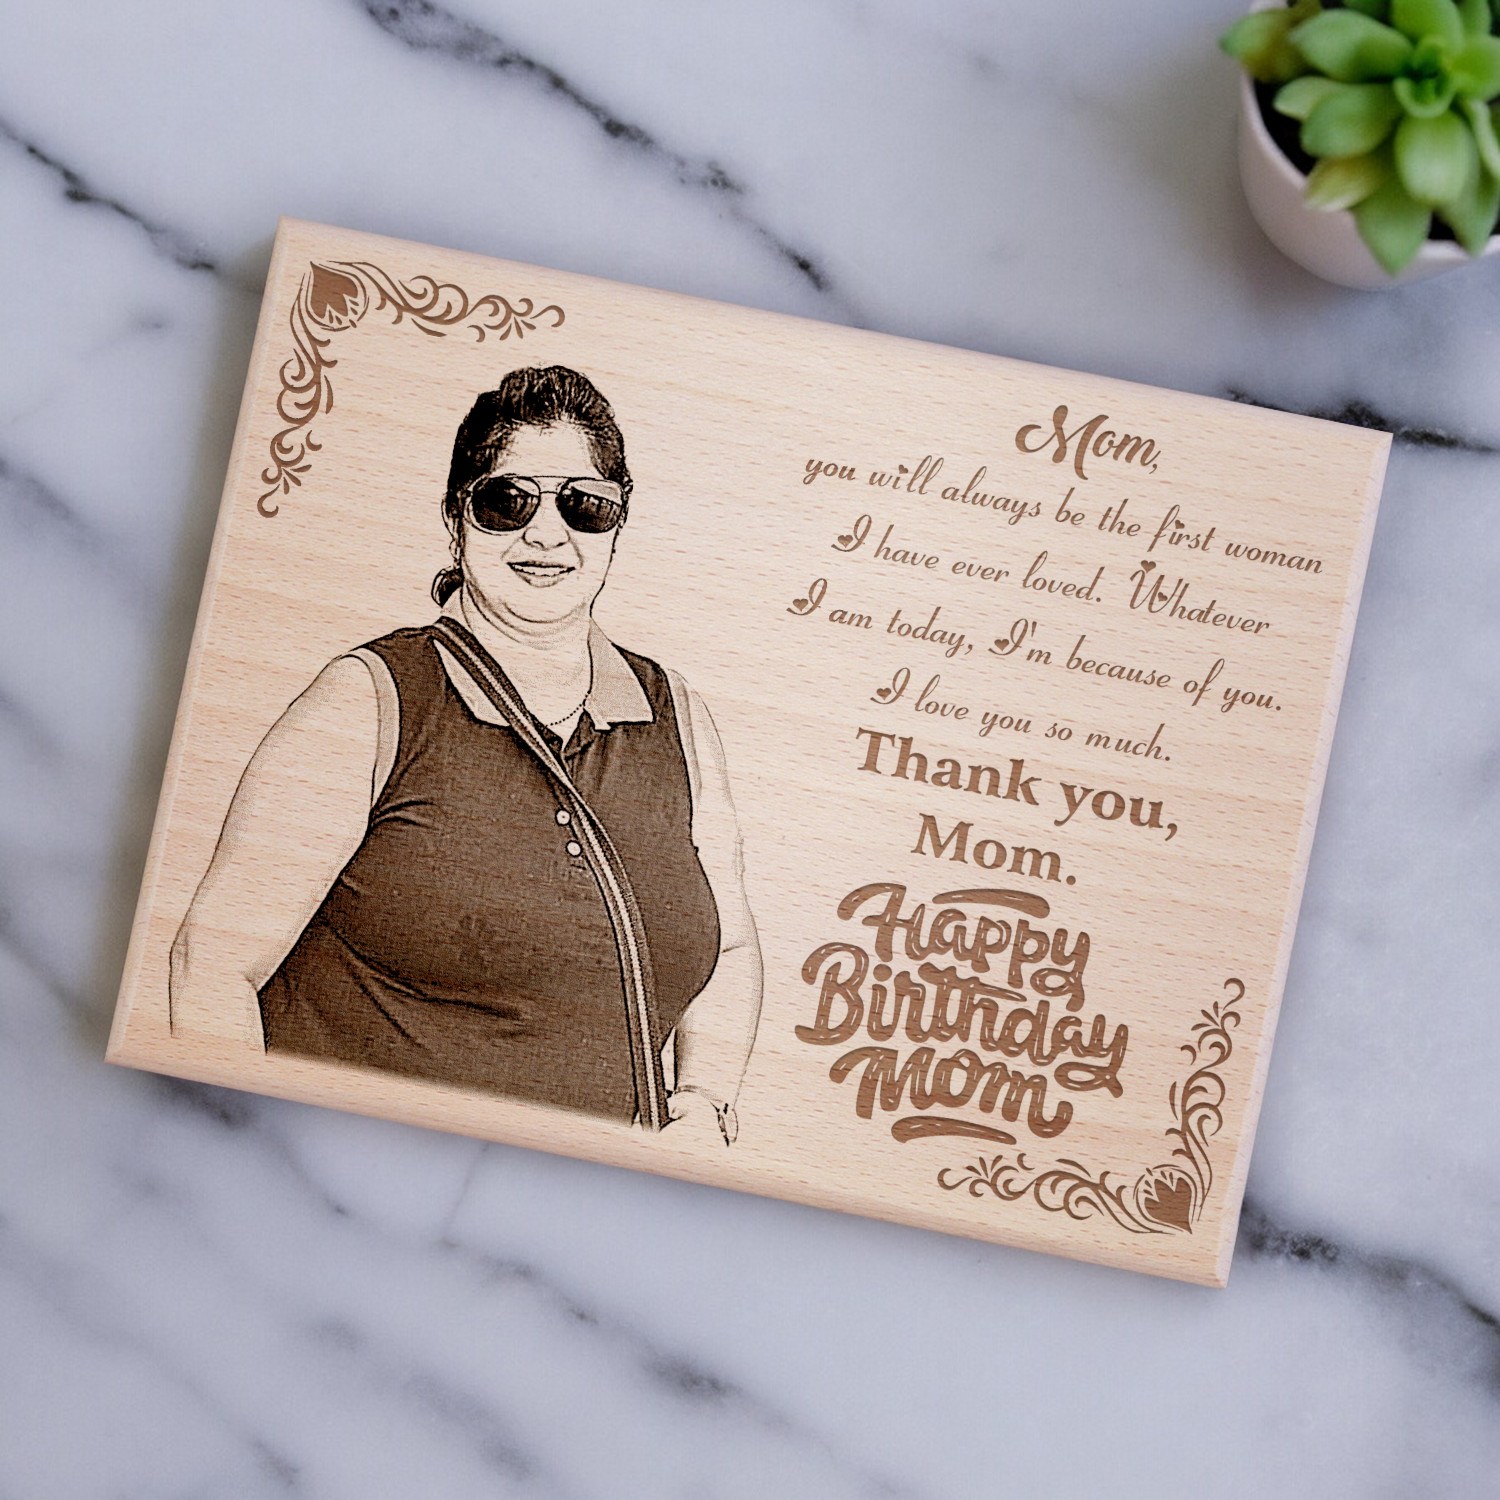 Mom,
you will always be the first woman
I have ever loved. Whatever
I am today, I'm because of you.
I love you so much.
Thank you,
Mom.
Happy
Birthday
Mom